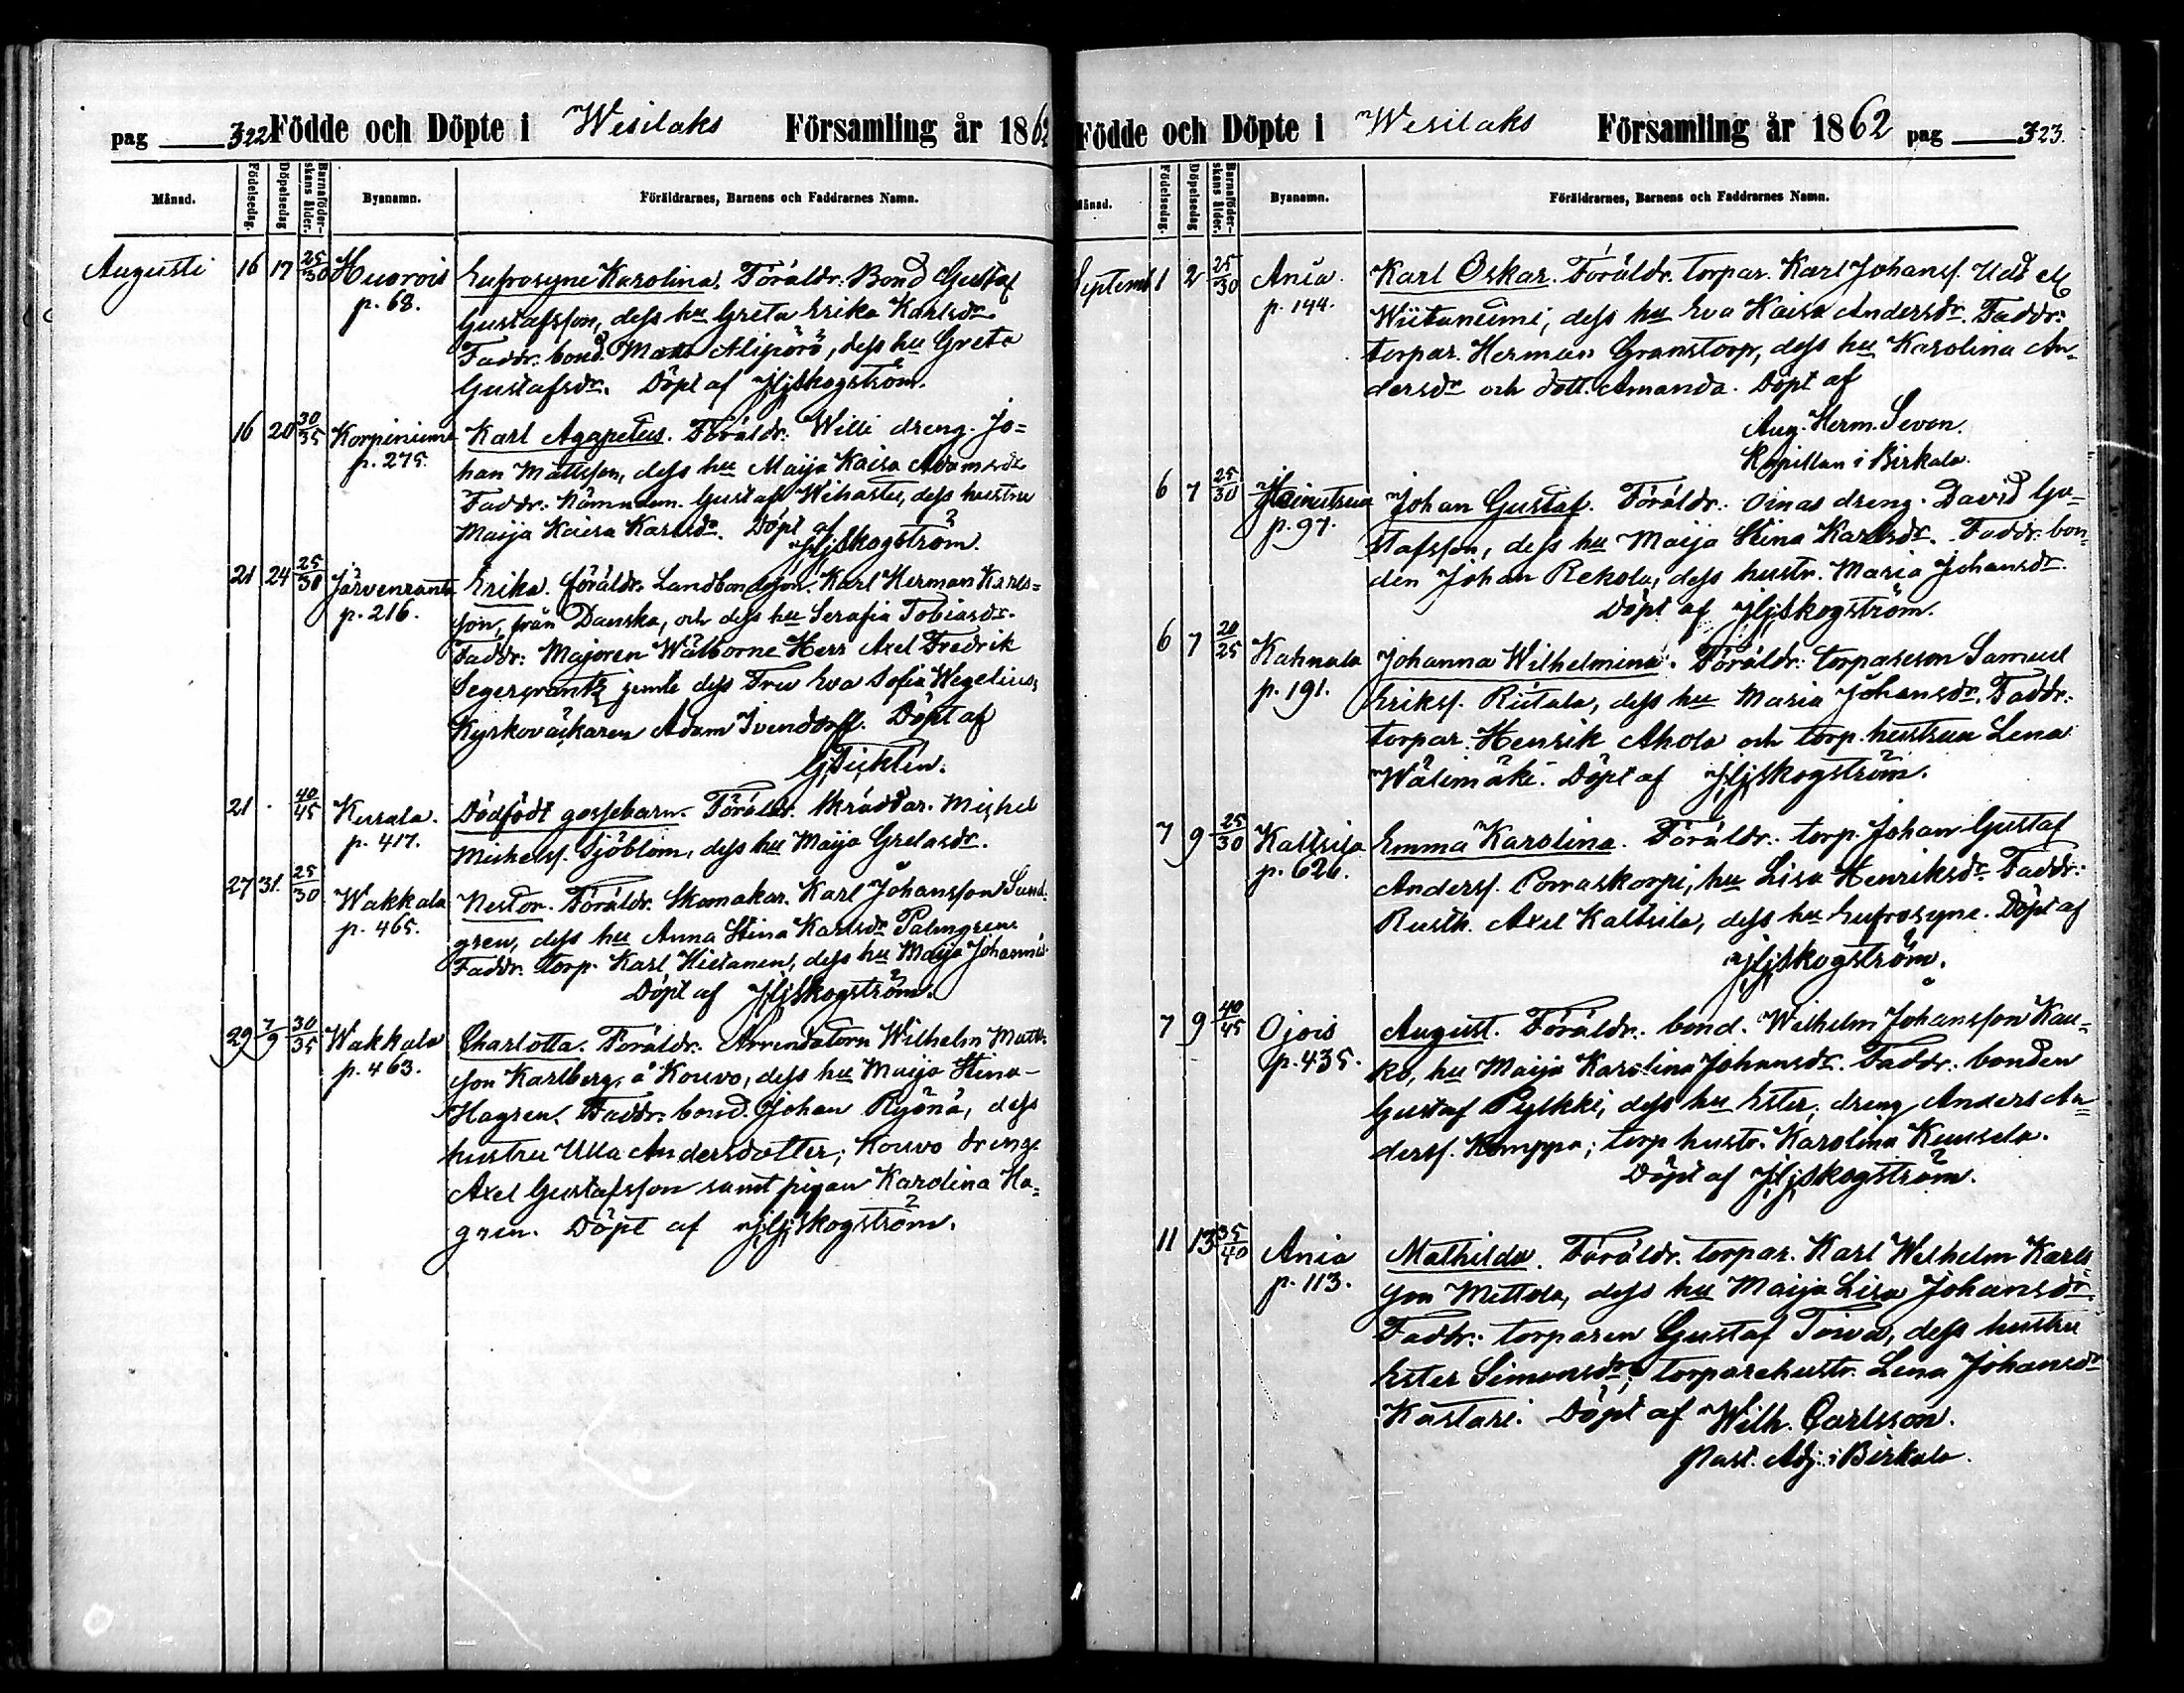 pag 322 Födde och Döpte i Wesilaks Församling år 1862
Månad. Födelsedag. Döpelsedag Barnaföderskans ålder. Bynamn. Föräldrarnes, Barnens och Faddrarnes Namn.
Augusti 16 17 25/30 Huorois Eufrosyne Karolina. Föräldr. Bond Gustaf
p. 68. Gustafsson, dess hu Greta Erika Karlsdr
Faddr. bond. Matts Alipörö, dess hu Greta
Gustafsdr. Döpt af JHjSkogström.
16 20 30/35 Korpiniemi Karl Agapetus. Föräldr. Willi dreng. Jo=
p. 275. han Mattsson, dess hu Maija Kaisa Adamsdr
Faddr. Gustaf Wihastu, dess hustru
Maija Kaisa Karlsdr. Döpt af
JHjSkogström.
21 24 25/30 Järvenranta Erika. föräldr. Landbondeson. Karl Herman Karls=
p. 216. son, från Danska, och dess hu Serafia Tobiasdr.
Faddr: Majoren Wälborne Herr Axel Fredrik
Segercrantz jemte dess Fru Eva Sofia Wegelius,
Kyrkoväktaren Adam Ivendorff. Döpt af
GDicklén.
21 . 40/45 Kurala. Dödfödt gossebarn. Föräldr. Skräddar. Michel
p. 417. Michelss. Sjöblom, dess hu Maija Gretasdr.
27 31. 25/30 Wakkala Nestor. Föräldr. Skomakar. Karl Johansson Sund
p. 465. gren, dess hu Anna Stina Karlsdr Palmgren
Faddr. torp. Karl Hietanen, dess hu Maija Johansdr
Döpt af JHjSkogström.
29 7/9 30/35 Wakkala Charlotta. Föräldr. Arrendatorn Wilhelm Matts
p. 463. son Karlberg, å Kouvo, dess hu Maija Stina
Hagren. Faddr. bond. Johan Ryönä, dess
hustru Ulla Andersdotter; Kouvo dreng.
Axel Gustafsson samt pigan Karolina Ha=
gren. Döpt af JHjSkogström.
Födde och Döpte i Wesilaks Församling år 1862 pag 323.
Månad. Födelsedag. Döpelsedag Barnaföderskans ålder. Bynamn. Föräldrarnes, Barnens och Faddrarnes Namn.
Septemb 1 2 25/30 Ania. Karl Oskar. Föräldr. torpar. Karl Johanss. Uds
p. 144. Wiitaniemi, dess hu Eva Kaisa Andersdr. Faddr:
torpar. Herman Granstorp, dess hu Karolina An=
dersdr och dott. Amanda. Döpt af
Aug. Herm. Sevon.
Kapellan i Birkala.
6 7 25/30 Heinutsua Johan Gustaf. Föräldr. Oinas dreng. David Gu=
p. 97. stafsson, dess hu Maija Stina Karlsdr. Faddr. bon=
den Johan Rekola, dess hustr. Maria Johansdr.
Döpt af JHjSkogström.
6 7 20/25 Kahnala Johanna Wilhelmina. Föräldr: torpareson Samuel
p. 191. Erikss. Riitala, dess hu Maria Johansdr. Faddr.
torpar. Henrik Ahola och torp. hustrun Lena
Wälimäki. Döpt af JHjSkogström.
7 9 25/30 Kaltsila Emma Karolina. Föräldr. torp. Johan Gustaf
p. 626. Anderss. Porraskorpi, hu Lisa Henriksdr. Faddr.
Rusth. Axel Kaltsila, dess hu Eufrosyne. Döpt af
JHjSkogström.
7 9 40/45 Ojois August. Föräldr. bond. Wilhelm Johansson Kau=
p. 435. ko, hu Maija Karolina Johansdr. Faddr. bonden
Gustaf Pylkki, dess hu Ester; dreng Anders An=
derss. Kamppa; torp hustr. Karolina Kuusela.
Döpt af JHjSkogström.
11 13 35/40 Ania Mathilda. Föräldr. torpar. Karl Wilhelm Karls
p. 113. son Mettola, dess hu Maija Lisa Johansdr.
Faddr. torparen Gustaf Toiva, dess hustru
Ester Simonsdr; torparehustr. Lena Johansdr
Kastari. Döpt af Wilh. Carlsson.
Past. Adj. i Birkala.